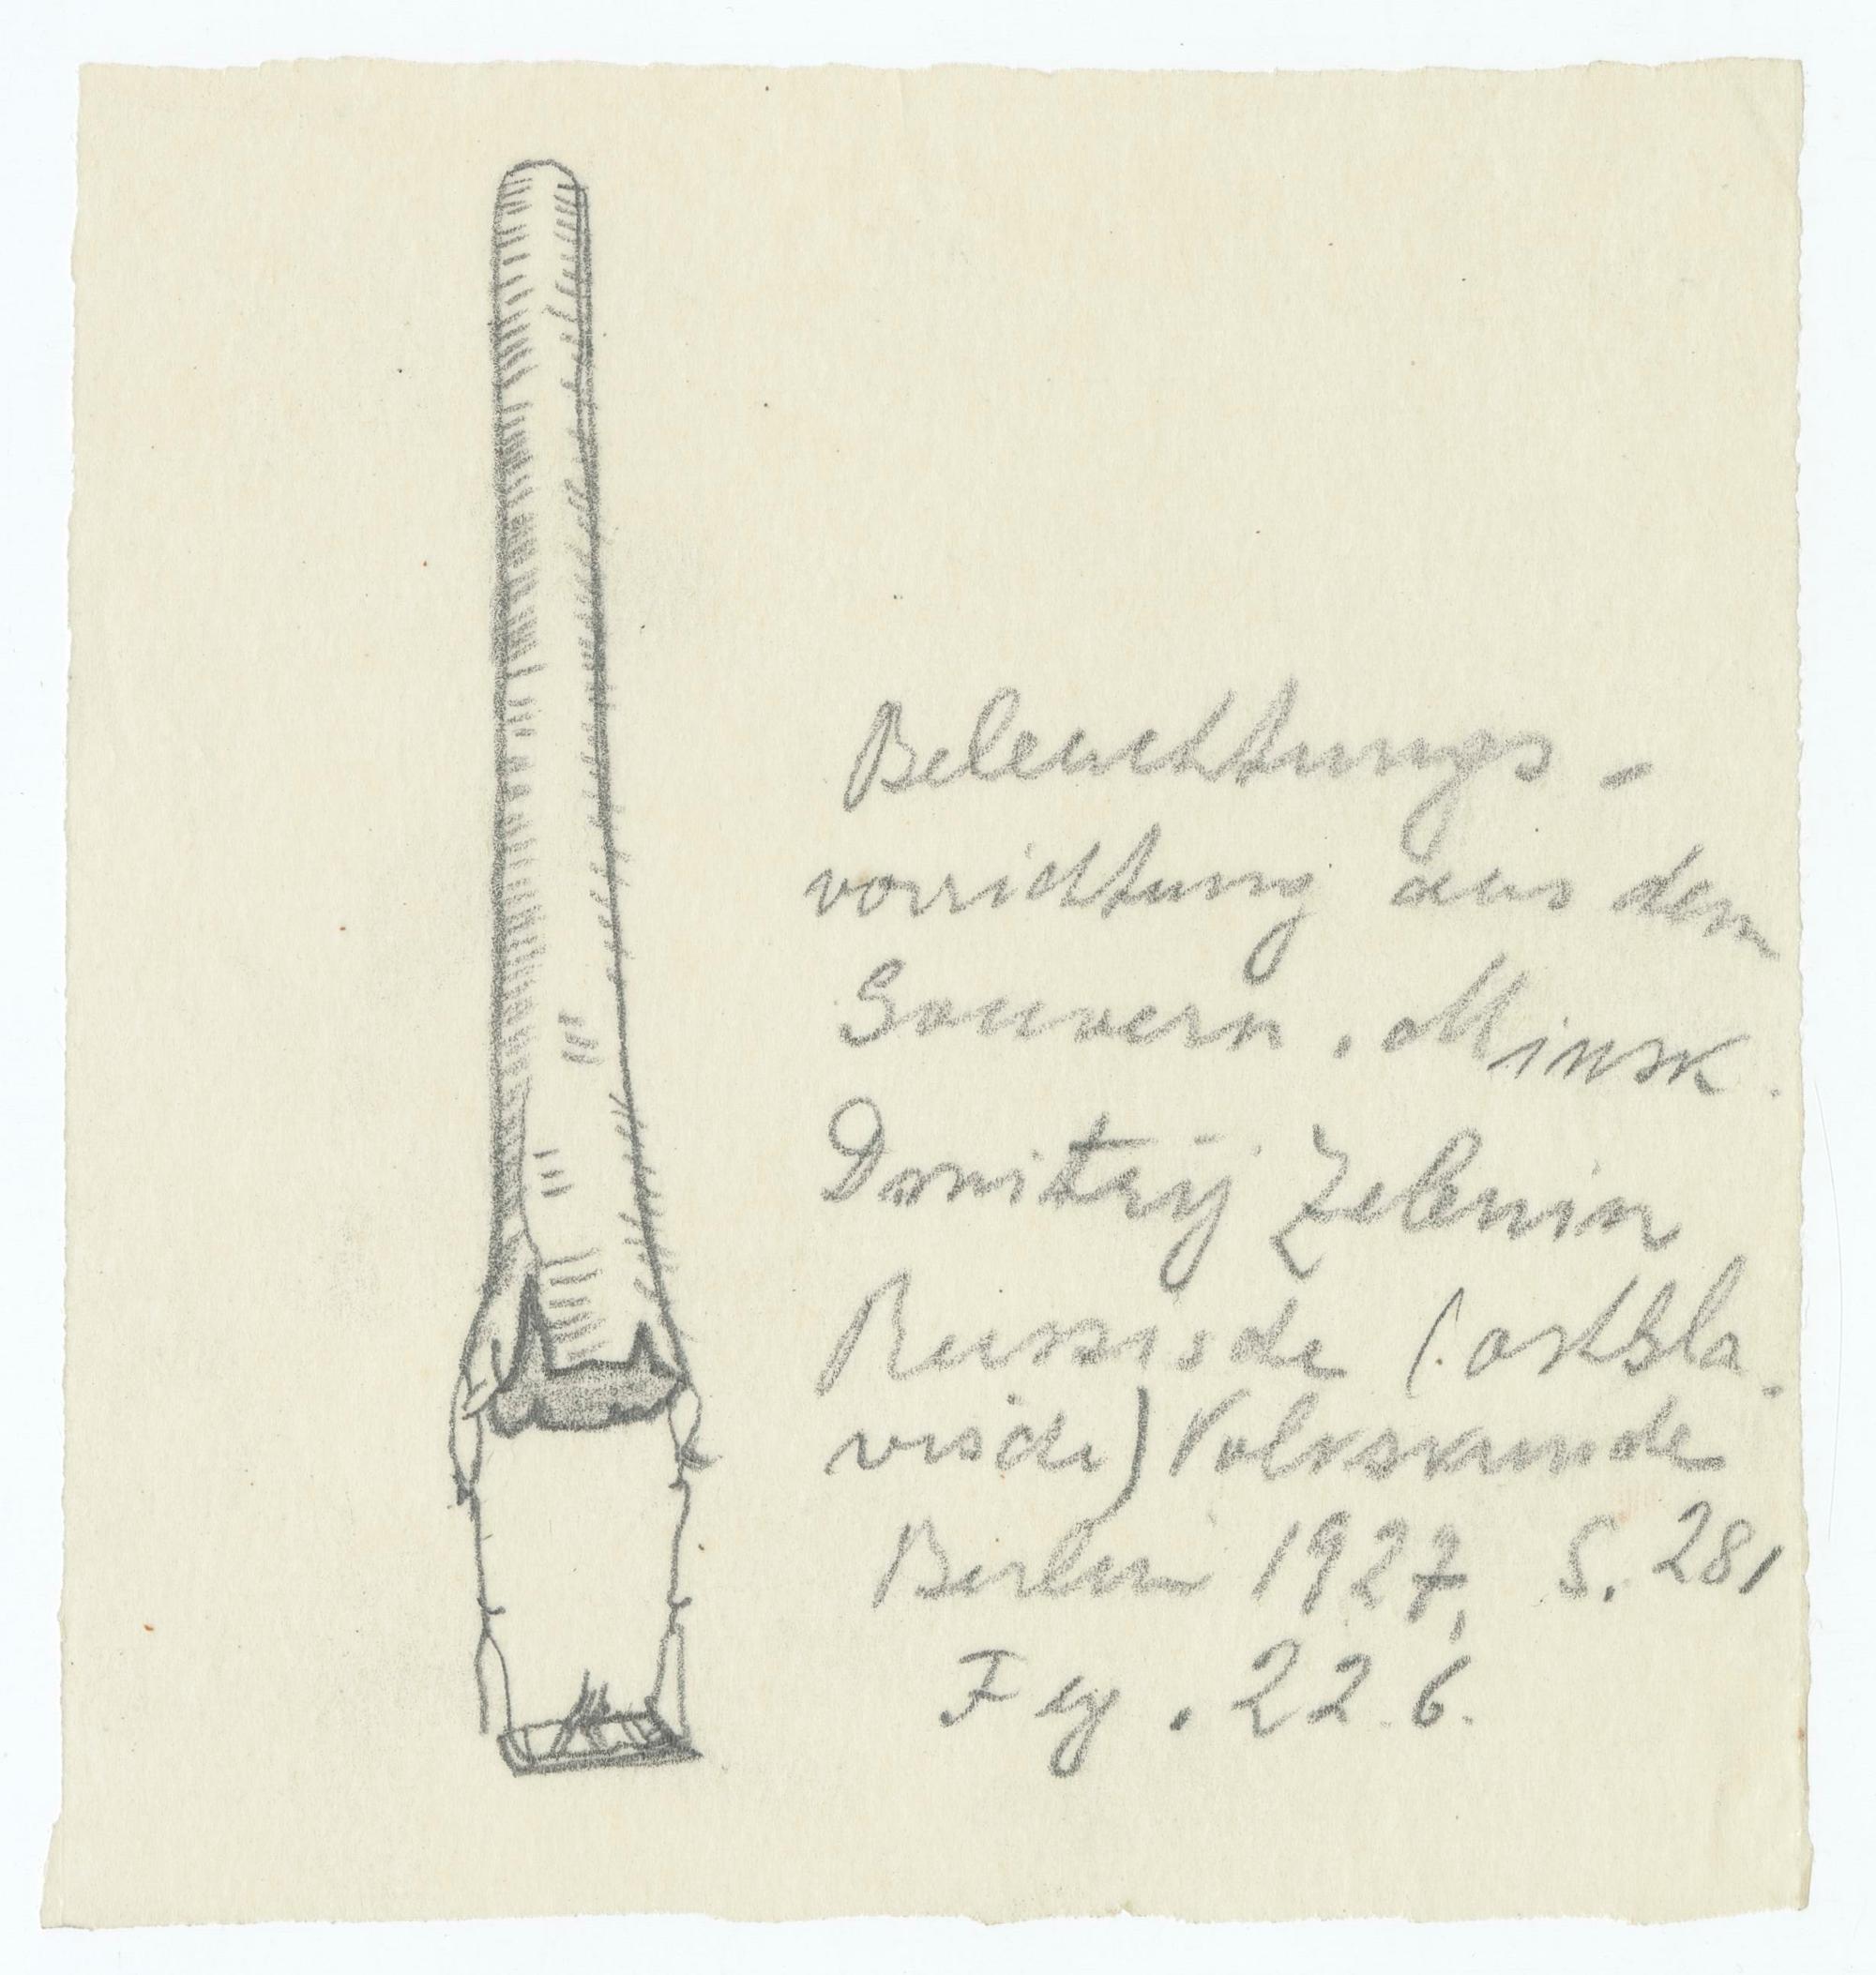 Beleuchtungs-
vorrichtung aus dem
Gouvern. Minsk.
Dmitrij Zelenin
Russische (ostsla-
vische) Volkskunde
Berlin 1927, S. 281
Fig. 226.